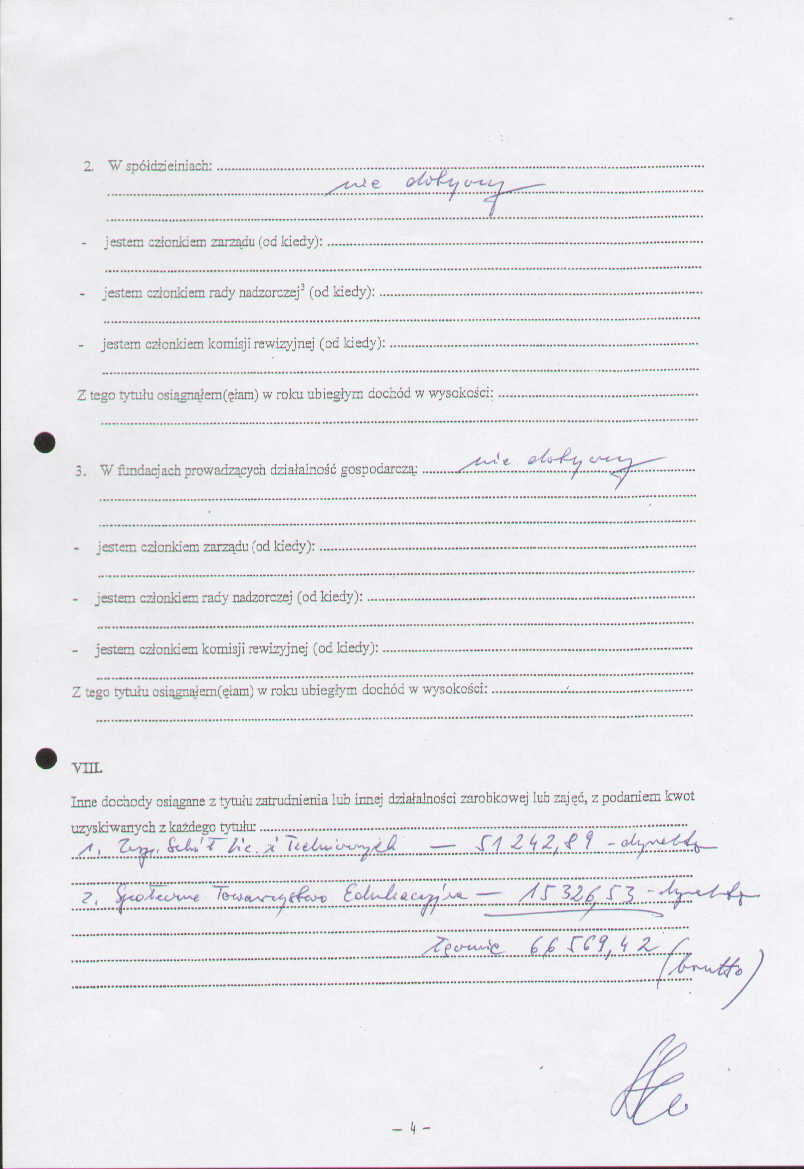 2. W spółdzielniach: ........................................
nie dotyczy
- jestem członkiem zarządu (od kiedy): ........................................
- jestem członkiem rady nadzorczej³ (od kiedy): ........................................
- jestem członkiem komisji rewizyjnej (od kiedy): ........................................
Z tego tytułu osiągnąłem(ęłam) w roku ubiegłym dochód w wysokości: ........................................
3. W fundacjach prowadzących działalność gospodarczą: .......... nie dotyczy
- jestem członkiem zarządu (od kiedy): ........................................
- jestem członkiem rady nadzorczej (od kiedy): ........................................
- jestem członkiem komisji rewizyjnej (od kiedy): ........................................
Z tego tytułu osiągnąłem(ęłam) w roku ubiegłym dochód w wysokości: ........................................
VIII.
Inne dochody osiągane z tytułu zatrudnienia lub innej działalności zarobkowej lub zajęć, z podaniem kwot
uzyskiwanych z każdego tytułu: ........................................
1. Zesp. Szkół Lic. i Technicznych — 51 242,89 -
2. Społeczne Towarzystwo Edukacyjne — 15 326,53 -
Łącznie 66 569,42 (brutto)
– 4 –